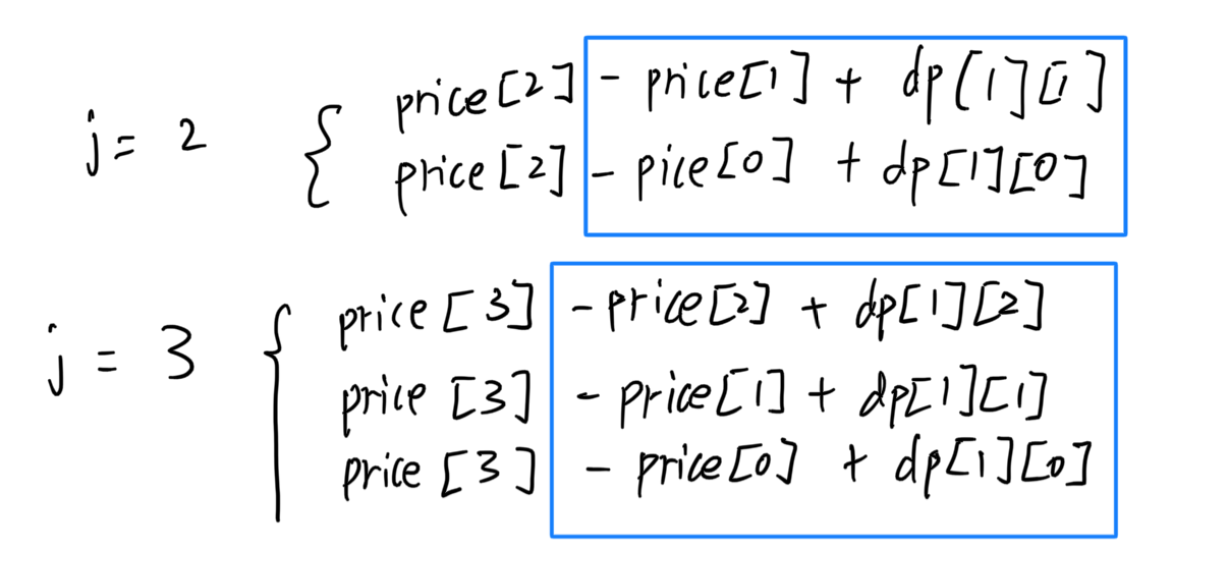 j = 2 { price[2] - price[1] + dp[1][1]
price[2] - pice[0] + dp[1][0]
j = 3 { price[3] - price[2] + dp[1][2]
price [3] - price[1] + dp[1][1]
price [3] - price[0] + dp[1][0]